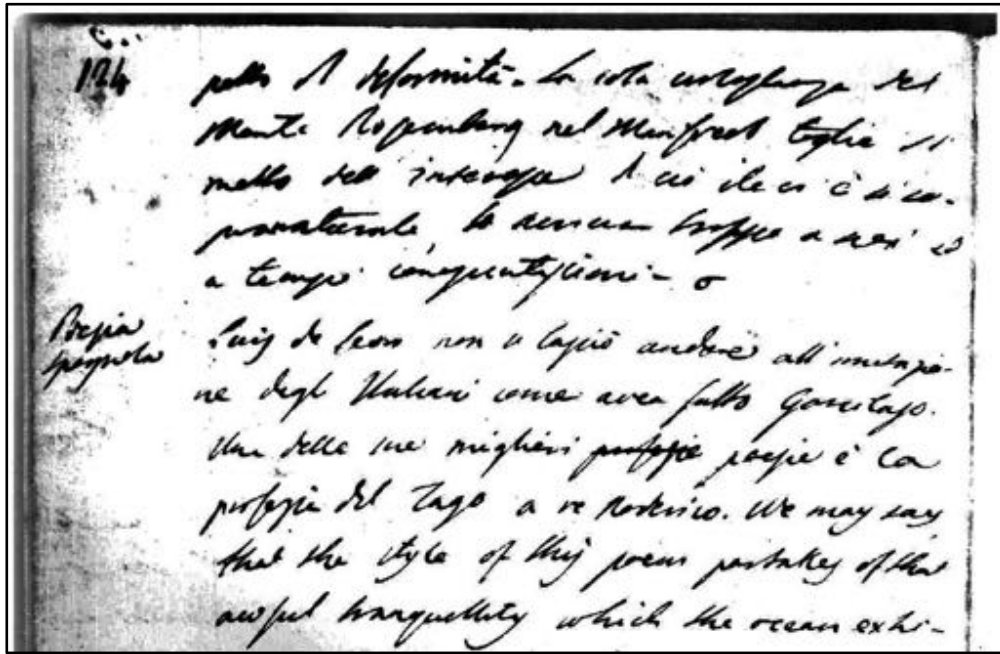 124
pello d deformità. La sola
Monte Rosenberg nel Manfred toglie il
mello dell' interesse d ciò che ci è di so-
prannaturale, la troppo a noi ed
a tempi
Poesia
spagnola
Luis de Leon non si lasciò andare all' imitazio-
ne degl' Italiani come avea fatto Garcilaso.
Una delle sue migliori profezie poesie è La
profezia del Tago a re Roderico. We may say
that the style of this poem partakes of that
awful tranquillity which the ocean exhi-